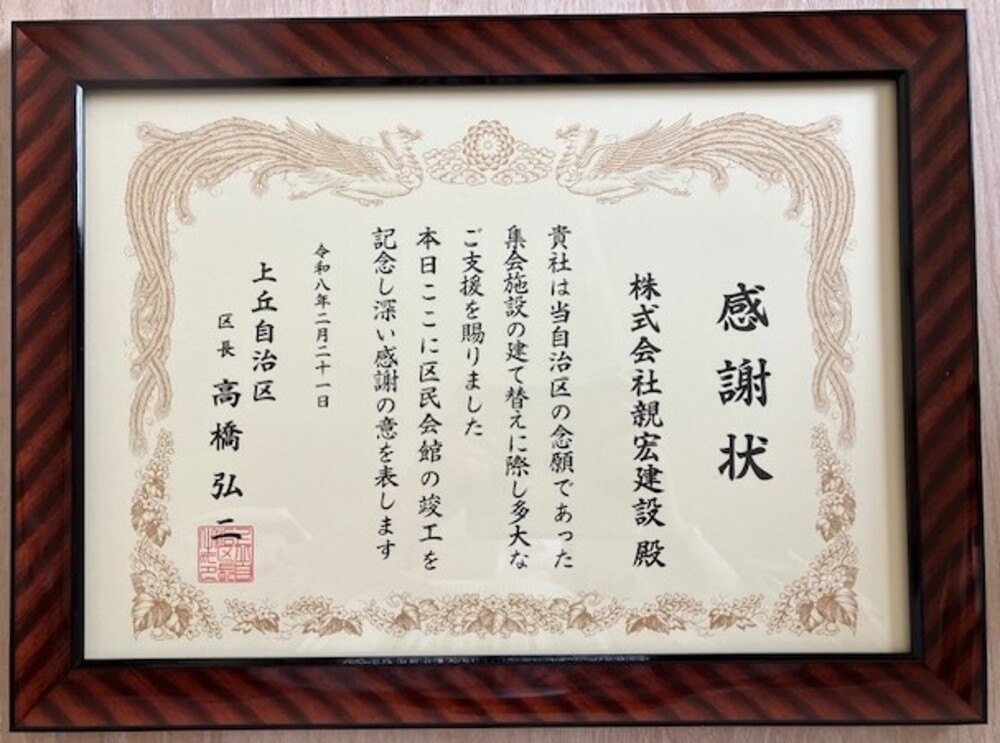 感謝状
株式会社親宏建設 殿
貴社は当自治区の念願であった
集会施設の建て替えに際し多大な
ご支援を賜りました
本日ここに区民会館の竣工を
記念し深い感謝の意を表します
令和八年二月二十一日
上丘自治区
区長 高橋弘二